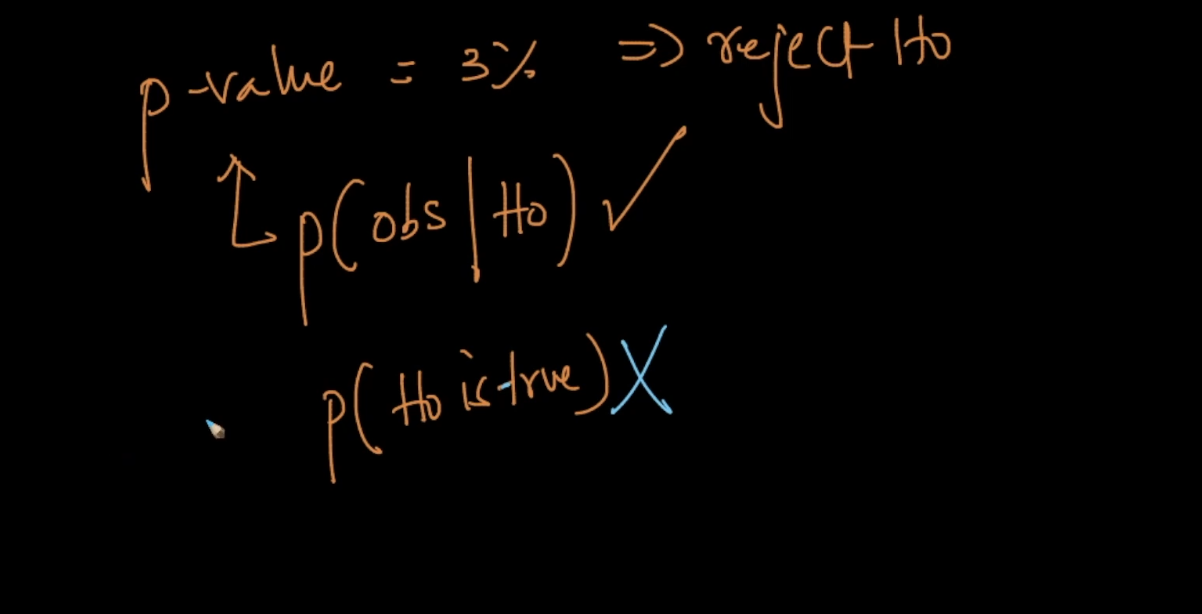 p-value = 3% => reject Ho
p(obs | Ho) ✓
p(Ho is true) X